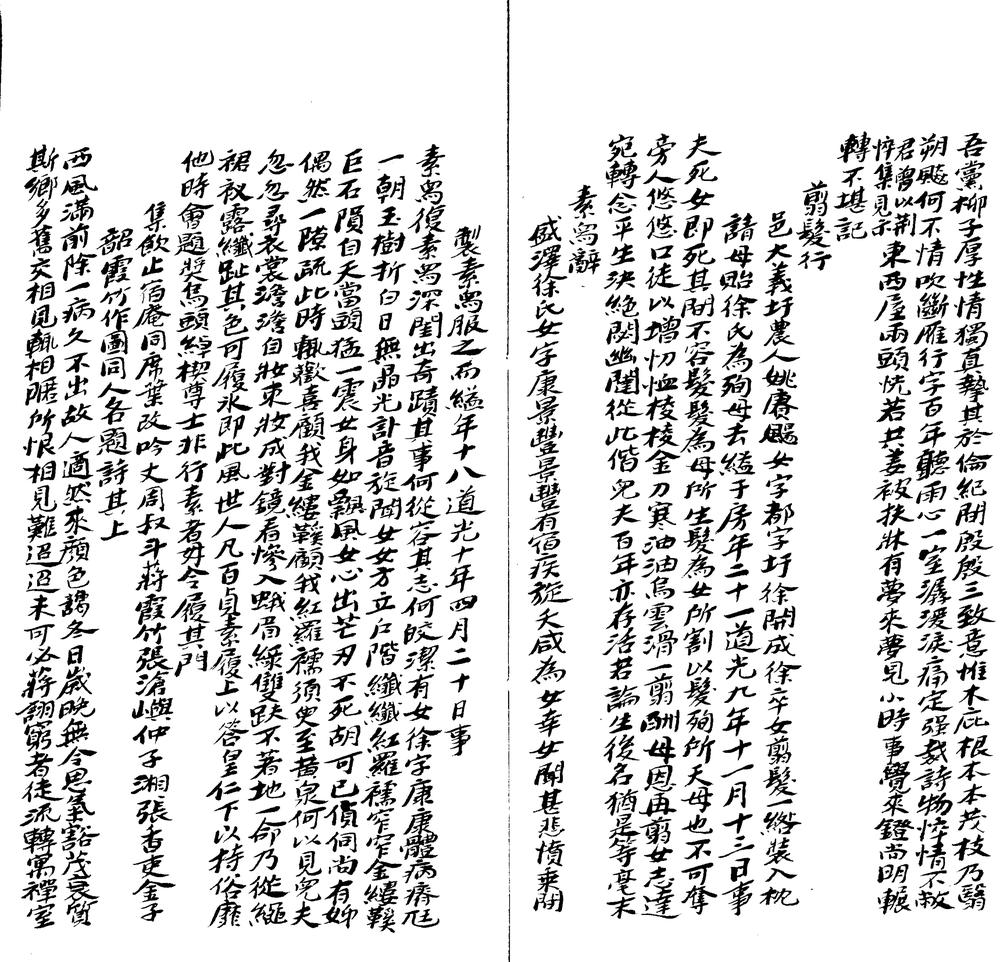 吾黨柳子厚性情獨真摯其於倫紀間殷殷三致意惟木庇根本本茂枝乃翳
朔飈何不情吹斷雁行字百年聽雨心一室潺湲淚痛定强裁詩物悴情不敝
君曾以荆
悴集見示
東西屋兩頭恍若共姜被扶牀有夢來夢見小時事覺來鐙尚明輾
轉不堪記
剪髮行
邑大義圩農人姚賡颺女字都字圩徐開成徐卒女剪髮一綹裝入枕
請母貽徐氏為殉母去縊于房年二十一道光九年十一月十三日事
夫死女即死其間不容髮髮為母所生髮為女所割以髮殉所天母也不可奪
旁人悠悠口徒以增忉怛棱棱金刀寒油油烏雲滑一剪酬母恩再剪女志達
宛轉念平生決絕閟幽闥從此偕兒夫百年亦存活若論生後名猶是等毫末
素舄辭
盛澤徐氏女字康景豐景豐有宿疾旋夭咸為女幸女聞甚悲憤乘間
製素舄服之而縊年十八道光十年四月二十日事
素舄復素舄深閨出奇蹟其事何從容其志何皎潔有女徐字康康體病瘠尪
一朝玉樹折白日無晶光訃音旋聞女女方立戶階纖纖紅羅襦窄窄金縷鞵
巨石隕自天當頭猛一震女身如飄風女心出芒刃不死胡可已偵伺尚有姆
偶然一隙疏此時輒歡喜顧我金縷鞵顧我紅羅襦須臾至黄泉何以見兒夫
忽忽尋衣裳澹澹自妝束妝成對鏡看慘入蛾眉綠雙趺不著地一命乃從繩
裙衩露纖趾其色可履冰即此風世人凡百貞素履上以答皇仁下以持俗靡
他時會題將烏頭綽楔尊士非行素者毋令履其門
集飲止宿庵同席葉改吟丈周叔斗蔣霞竹張滄嶼仲子湘張香吏金子
韶霞竹作圖同人各題詩其上
西風滿前除一病久不出故人適然來顏色謁冬日歲晚無令思氣豁茂衰質
斯鄉多舊交相見輒相暱所恨相見難迢迢未可必蔣詡窮者徒流轉寓禪室